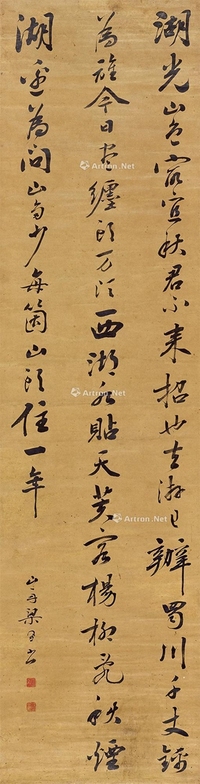 湖光山色冣宜秋君不来招也去游已辦蜀川千丈錦
為旌今日出纏頭万頃西湖水貼天芙容楊柳亂秋煙
湖邊為問山多少每箇山頭住一年
山舟梁同書
Artron.Net
Artron.Net
Artron.Net
Artron.Net